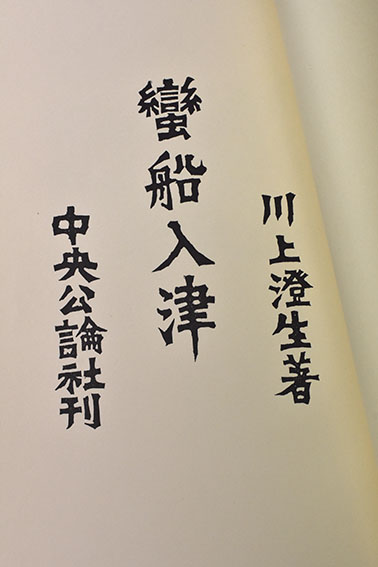 川上澄生著
蠻船入津
中央公論社刊